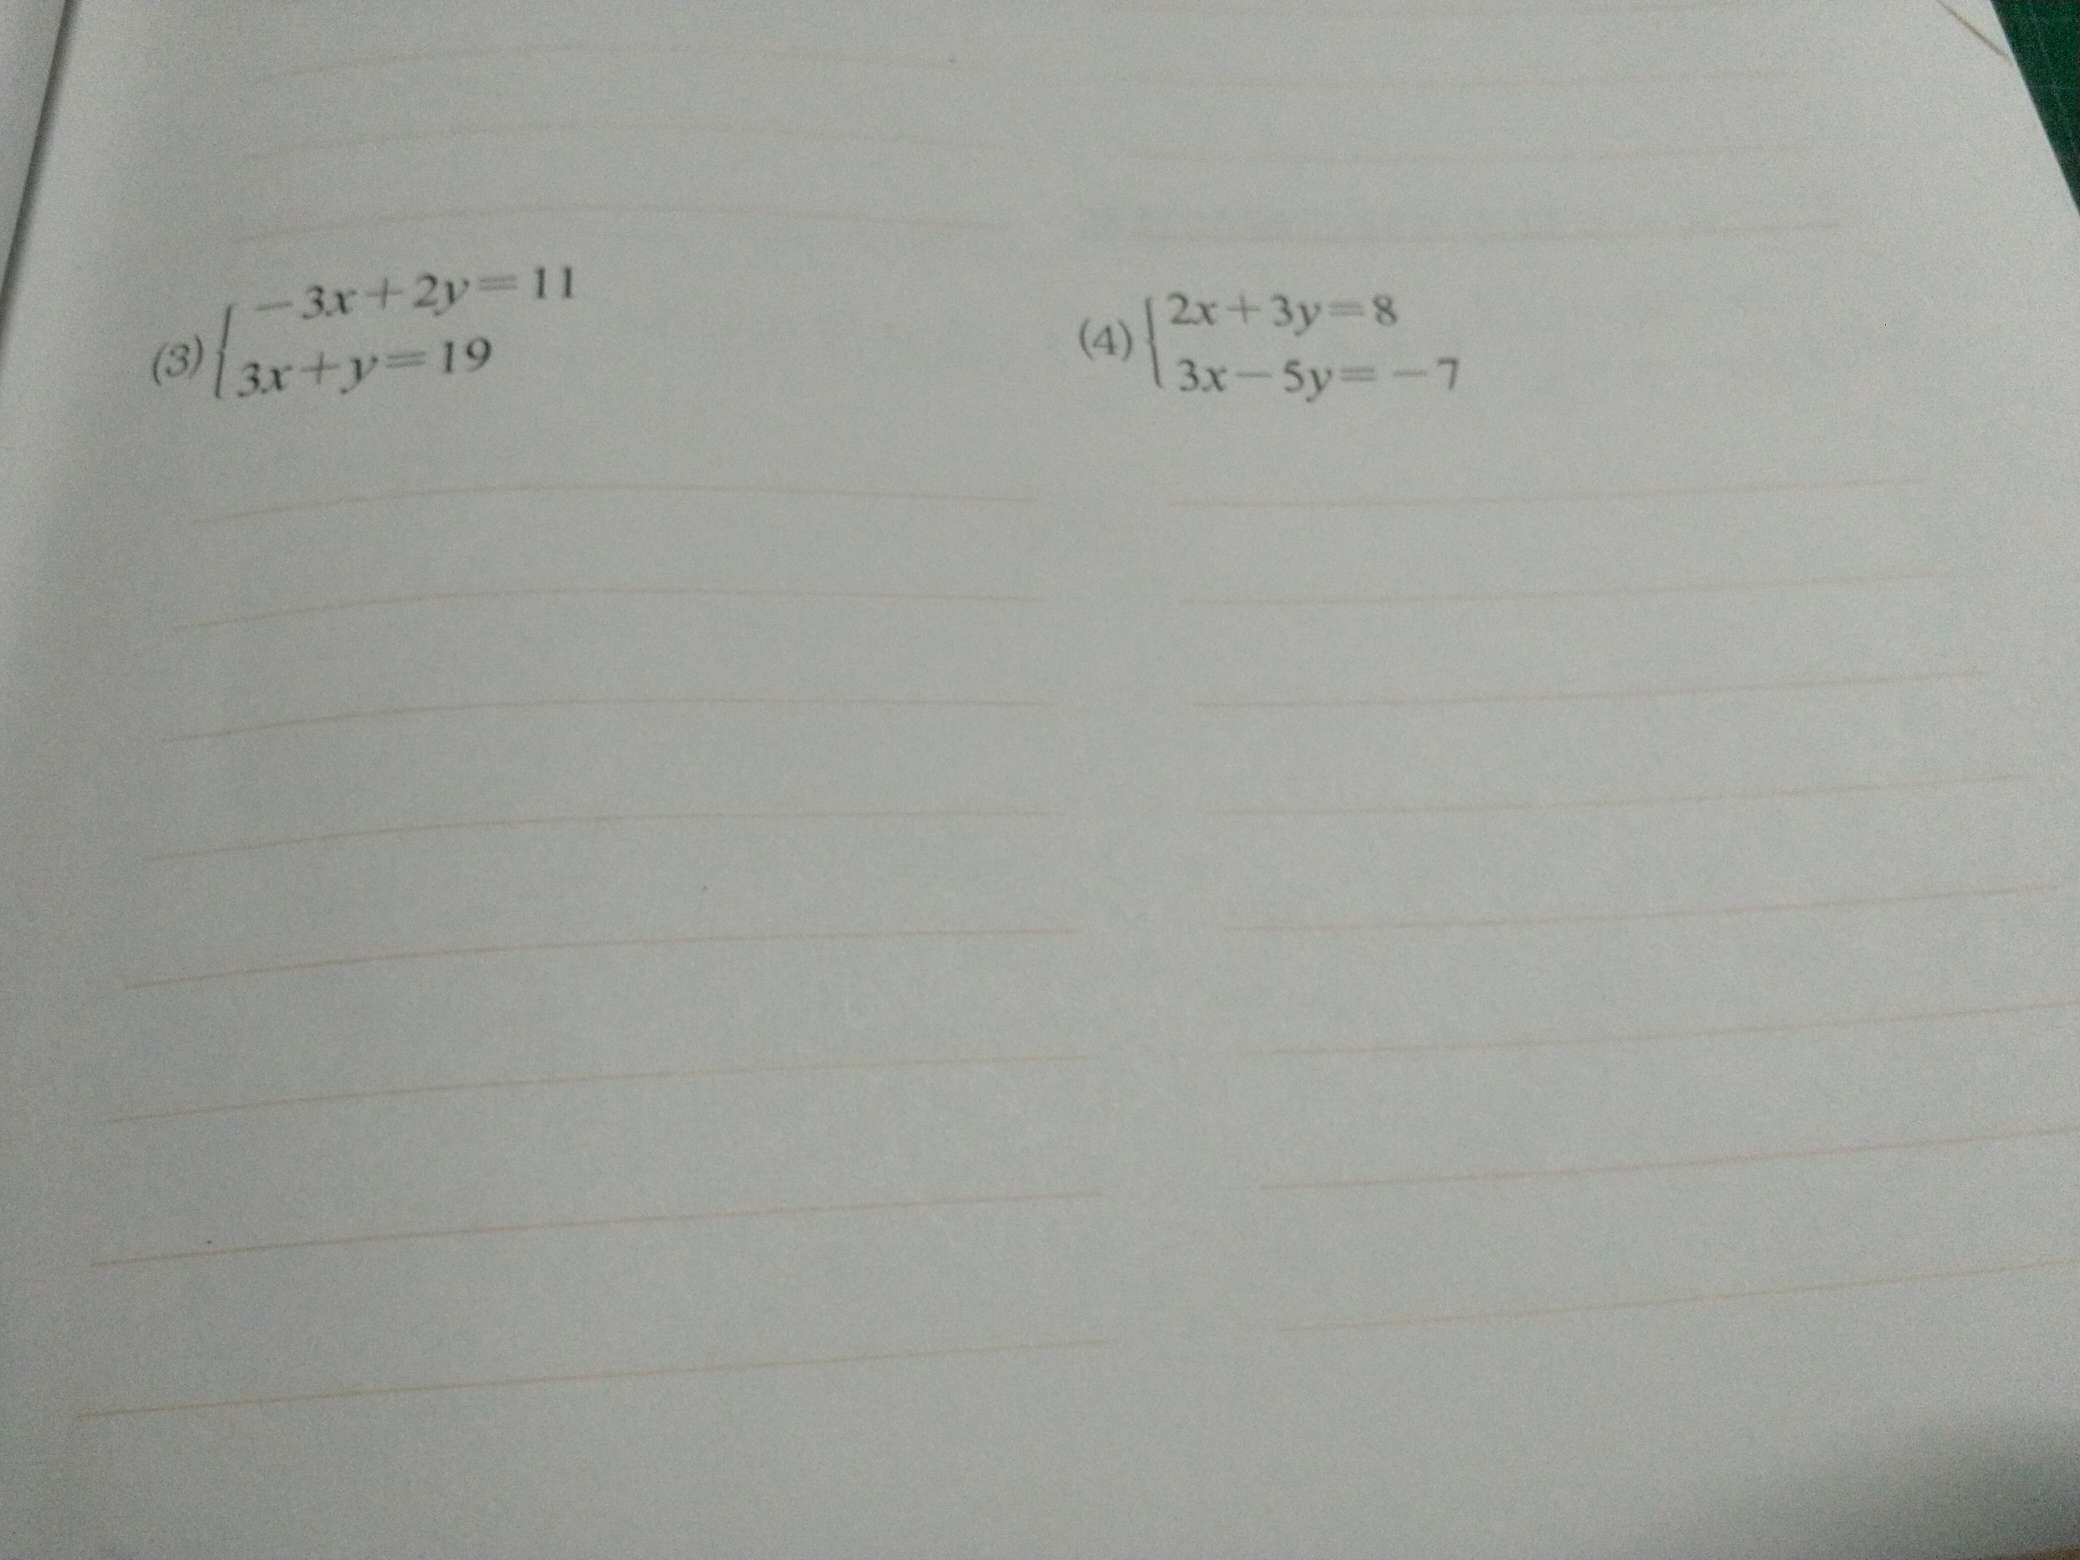 (3) { -3x+2y=11
3x+y=19
(4) { 2x+3y=8
3x-5y=-7